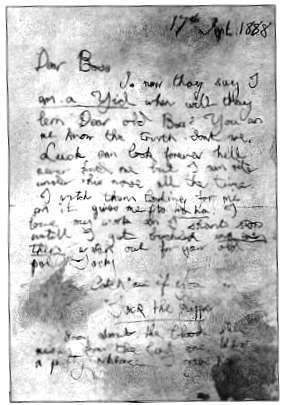 17th Sept 1888
Dear Boss
So now they say I
am a Yid when will they
lern Dear old Boss? You an
me know the truth dont we.
Lusk can look forever hell
never find me but I am rite
under his nose all the time
I watch them looking for me
an it gives me fits ha ha I
love my work an I shant stop
untill I get buckled and even
then watch out for your old
pal Jacky
Catch me if you
Jack the Ripper
Sorry about the blood still
messy from the last one. What
a pretty necklace gave her